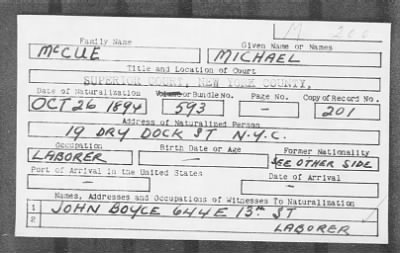 M 200
Family Name Given Name or Names
McCUE MICHAEL
Title and Location of Court
SUPERIOR COURT, NEW YORK COUNTY,
Date of Naturalization Volume or Bundle No. Page No. Copy of Record No.
OCT 26 1894 593 - 201
Address of Naturalized Person
19 DRY DOCK ST N.Y.C.
Occupation Birth Date or Age Former Nationality
LABORER - SEE OTHER SIDE
Port of Arrival in the United States Date of Arrival
- -
Names, Addresses and Occupations of Witnesses To Naturalization
1 JOHN BOYCE 644 E 13TH ST
2 LABORER